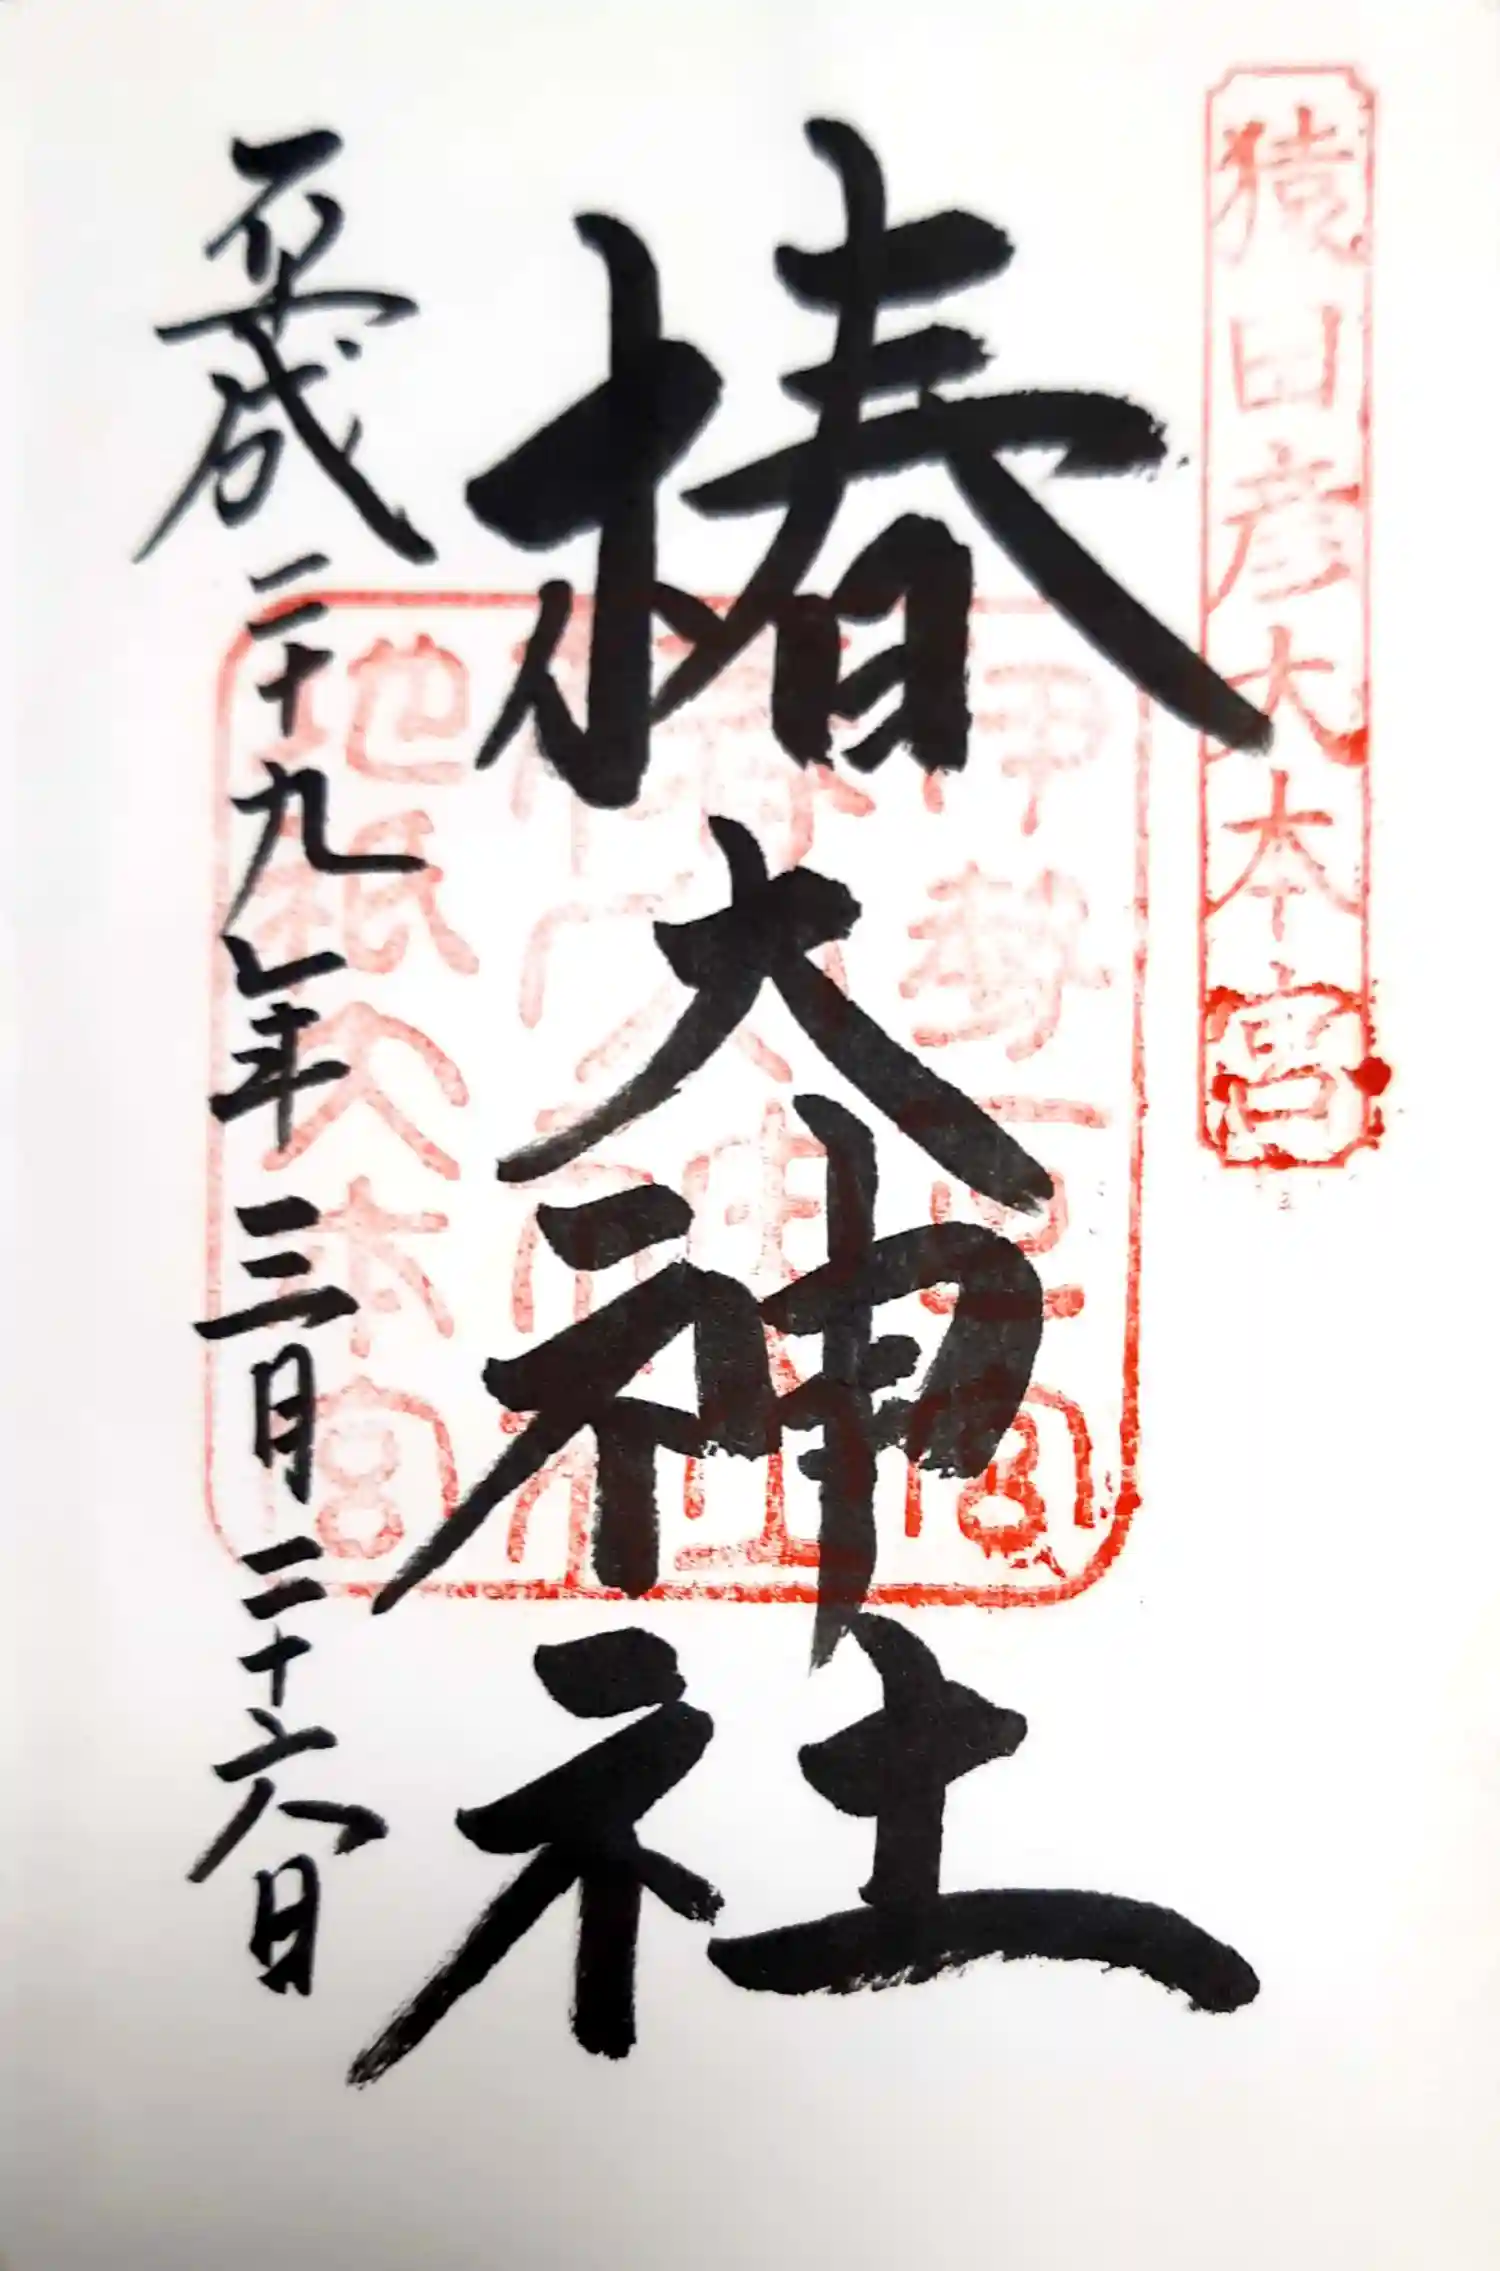 猿田彦大本宮
椿大神社
伊勢一之宮
椿大神社
地祇大本宮
平成二十九年三月二十六日